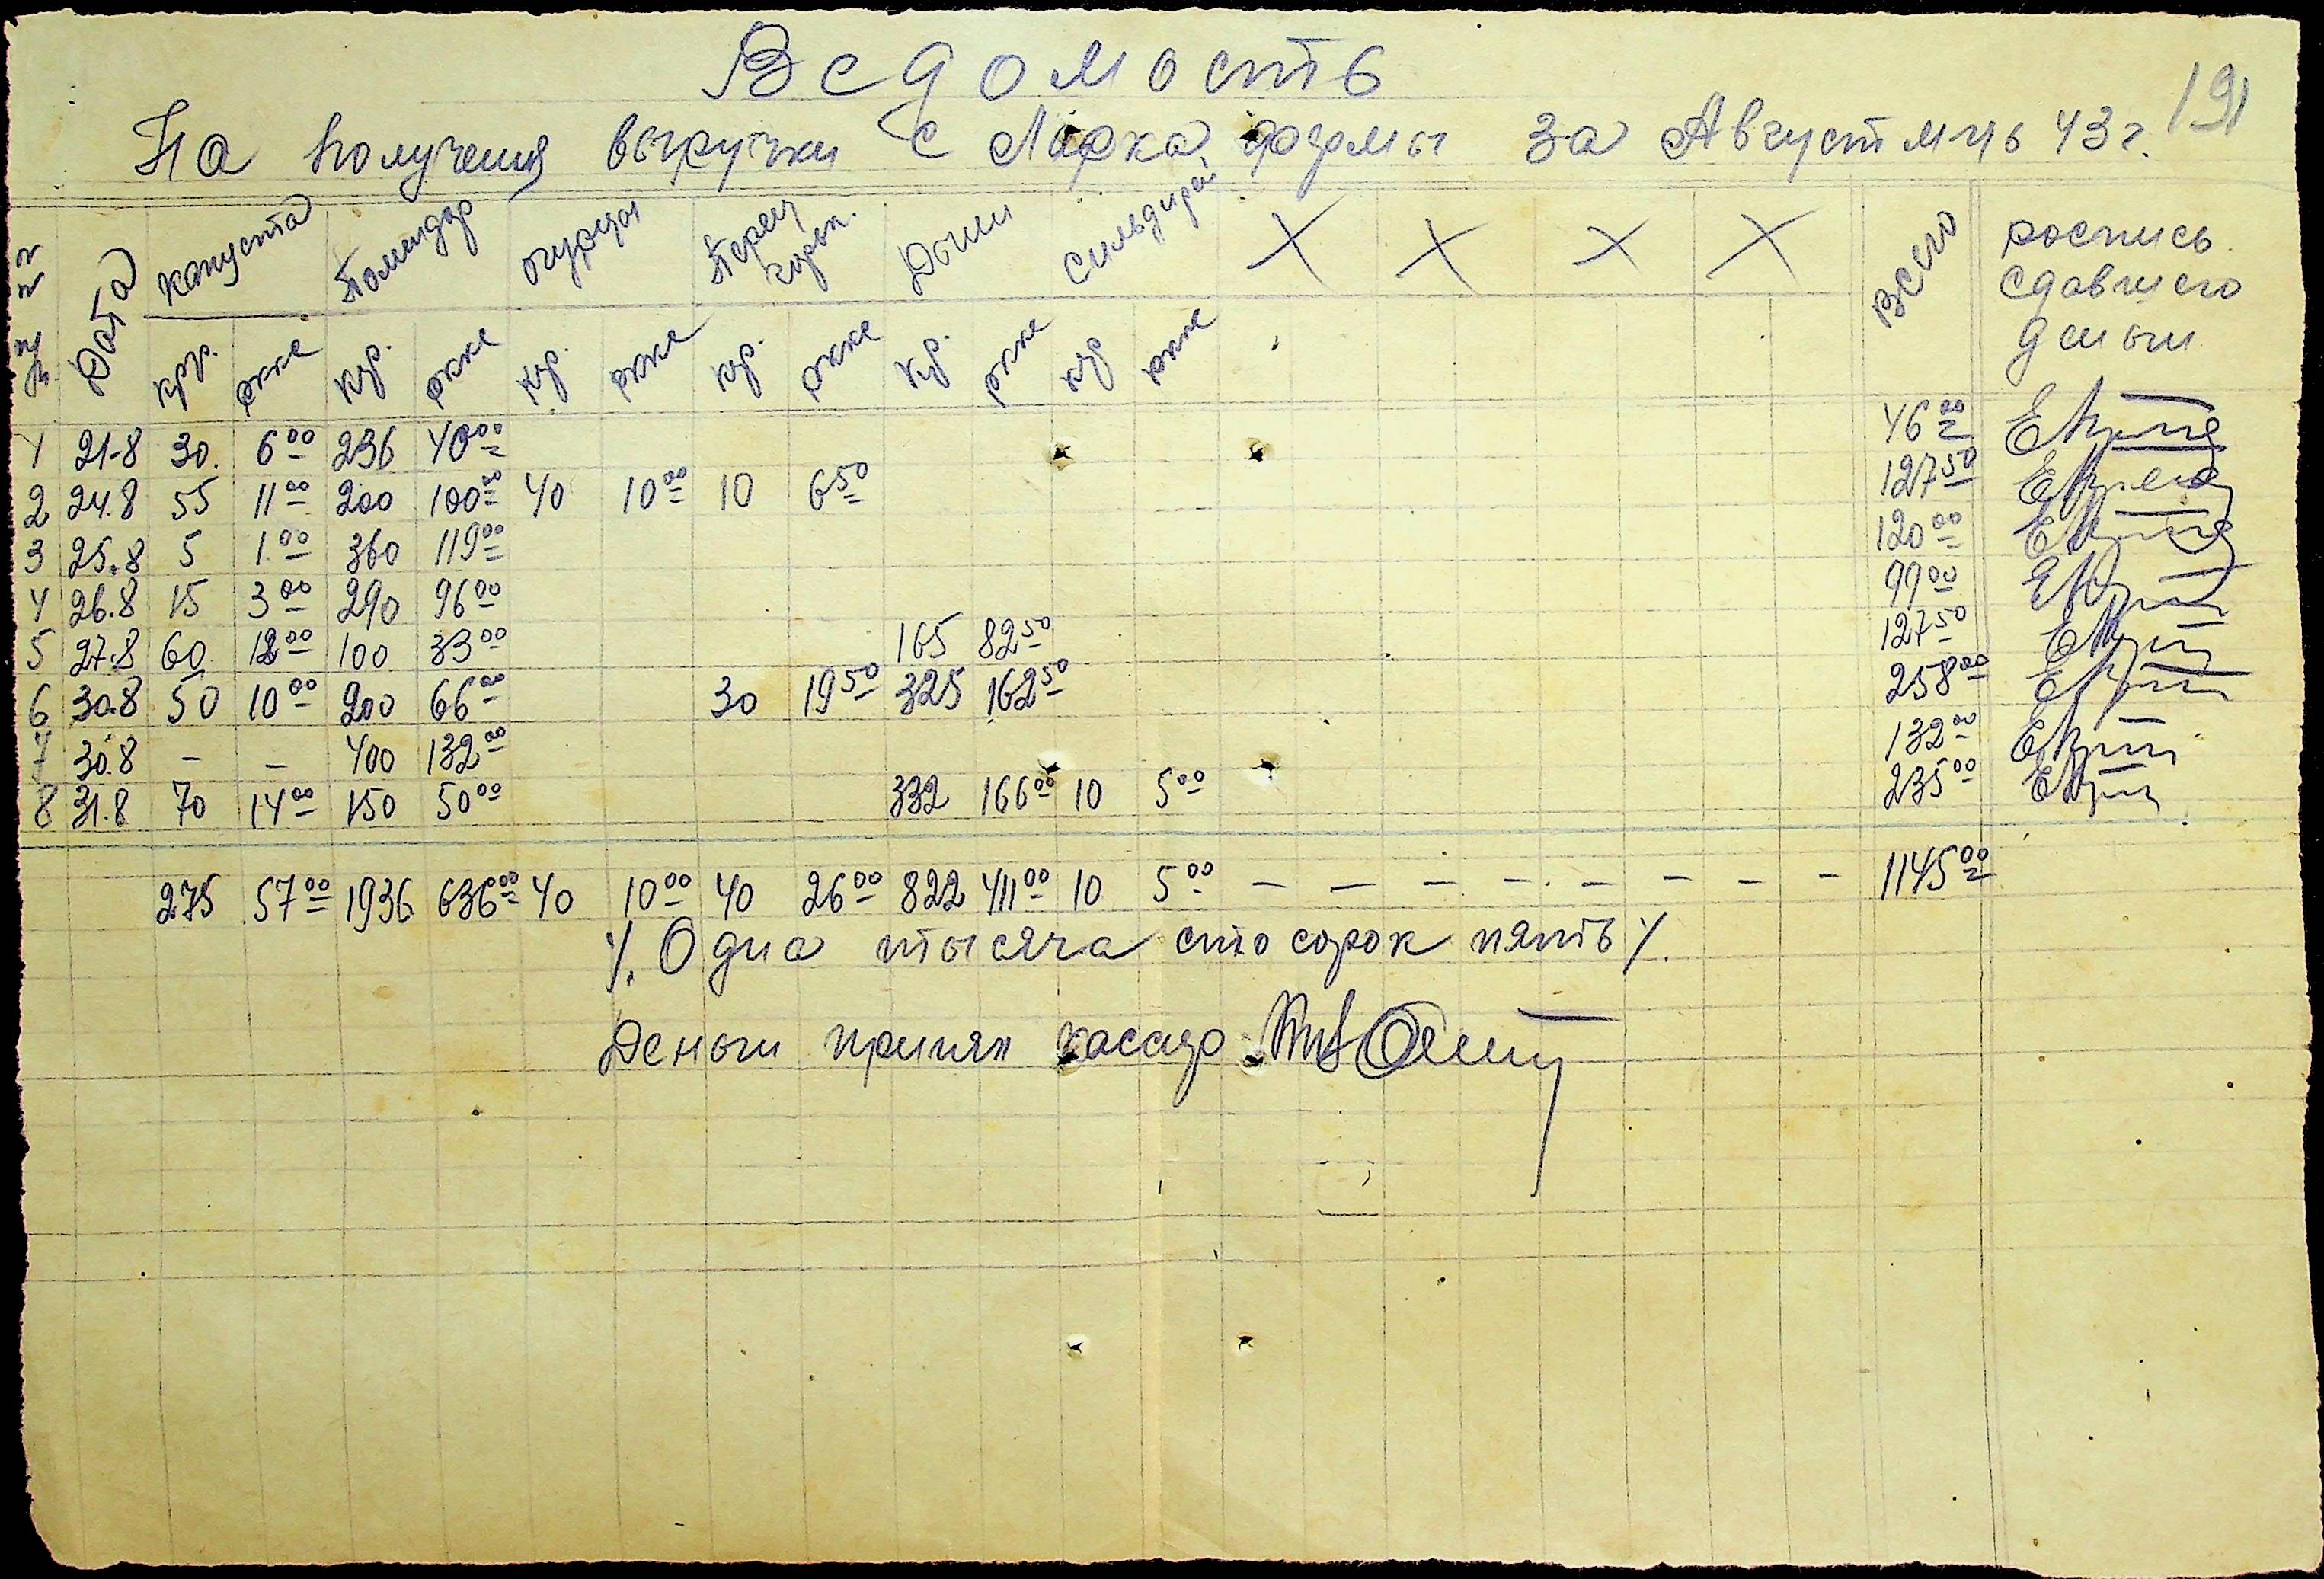 Ведомость
191
На получения выручки с Ларка фермы за Август м-ць 43 г.
Дата капуста Помидор огурцы Перец горьк. Дыни Сильдирей Х Х Х Х всего роспись сдавшего деньги
кгр. кр. кр. кр. кр. кр
1 21-8 30. 6 00 236 40 00 46 00
2 24.8 55 11 00 200 100 00 40 10 00 10 6 50 127 50
3 25.8 5 1 00 360 119 00 120 00
4 26.8 15 3 00 290 96 00 99 00
5 27.8 60 12 00 100 33 00 165 82 50 127 50
6 30.8 50 10 00 200 66 00 30 19 50 325 162 50 258 00
7 30.8 – – 400 132 00 132 00
8 31.8 70 14 00 150 50 00 332 166 00 10 5 00 235 00
275 57 00 1936 636 00 40 10 00 40 26 00 822 411 00 10 5 00 – – – – – – – – 1145 00
/. Одна тысяча сто сорок пять /.
Деньги принял касир